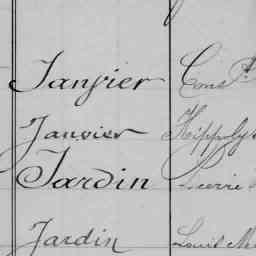 Janvier Const
Janvier Hippoly
Jardin Pierre
Jardin Louis Me